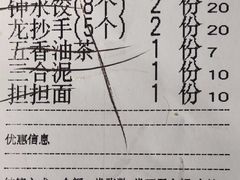 钟水饺(8个) 2 份 20
龙抄手(5个) 2 份 20
五香油茶 1 份 7
三合泥 1 份 10
担担面 1 份 10
优惠信息